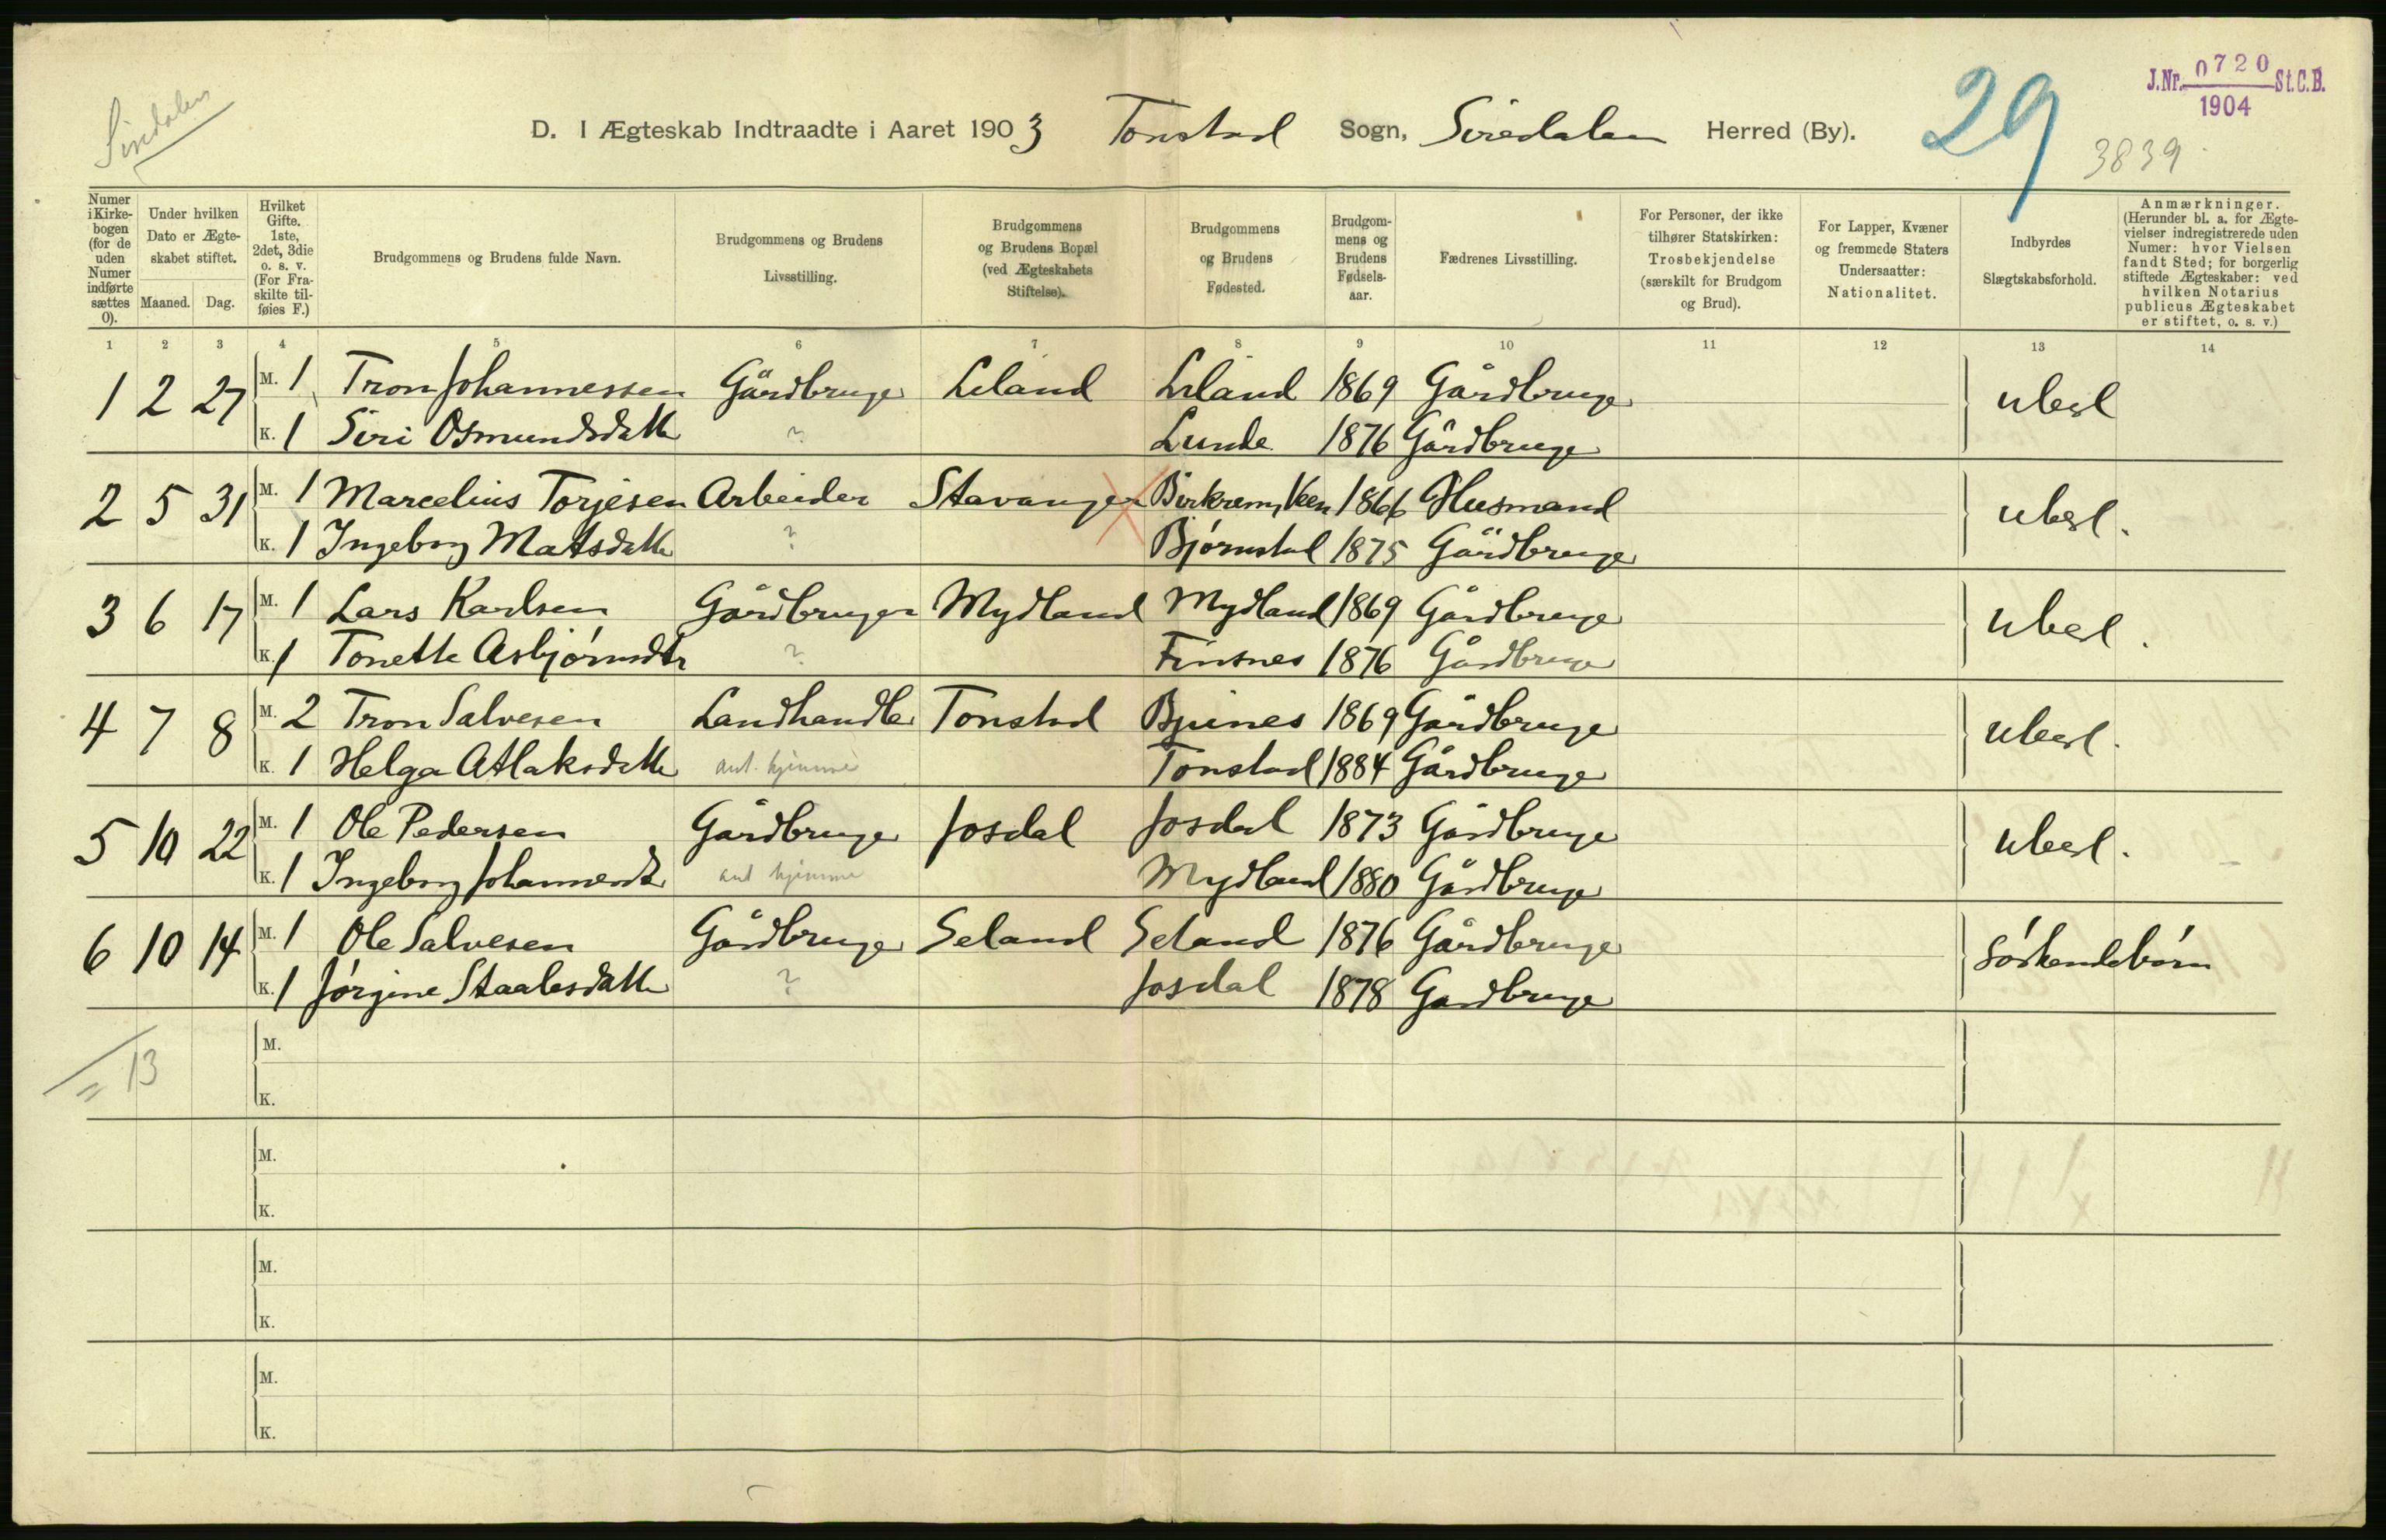 Siredalen
D. I Ægteskab Indtraadte i Aaret 1903 Tonstad Sogn, Siredalen Herred (By).
29
J.Nr. 0720 St.C.B.
1904
3839
Numer i Kirkebogen (for de uden Numer indførte sættes 0).
Under hvilken Dato er Ægteskabet stiftet.
Maaned. Dag.
Hvilket Gifte. 1ste, 2det, 3die o. s. v. (For Fraskilte tilføies F.)
Brudgommens og Brudens fulde Navn.
Brudgommens og Brudens Livsstilling.
Brudgommens og Brudens Bopæl (ved Ægteskabets Stiftelse).
Brudgommens og Brudens Fødested.
Brudgommens og Brudens Fødselsaar.
Fædrenes Livsstilling.
For Personer, der ikke tilhører Statskirken: Trosbekjendelse (særskilt for Brudgom og Brud).
For Lapper, Kvæner og fremmede Staters Undersaatter: Nationalitet.
Indbyrdes Slægtskabsforhold.
Anmærkninger. (Herunder bl. a. for Ægtevielser indregistrerede uden Numer: hvor Vielsen fandt Sted; for borgerlig stiftede Ægteskaber: ved hvilken Notarius publicus Ægteskabet er stiftet, o. s. v.)
1 2 3 4 5 6 7 8 9 10 11 12 13 14
1 2 27 M. 1 Tron Johannessen Gårdbruger Leland Leland 1869 Gårdbruger ubesl
K. 1 Siri Osmundsdatte ? Lunde 1876 Gårdbruger
2 5 31 M. 1 Marcelius Torjesen Arbeider Stavanger Birkrem, 1866 Husmand ubesl.
K. 1 Ingeborg Matsdatte ? Bjørnstad 1875 Gårdbruger
3 6 17 M. 1 Lars Karlsen Gårdbruger Mydland Mydland 1869 Gårdbruger ubesl.
K. 1 Tonette Asbjørnsdtr ? Finsnes 1876 Gårdbruger
4 7 8 M. 2 Tron Salvesen Landhandler Tonstad 1869 Gårdbruger ubesl.
K. 1 Helga Atlaksdatte ant. hjemme Tonstad 1884 Gårdbruger
5 10 22 M. 1 Ole Pedersen Gårdbruger Josdal Josdal 1873 Gårdbruger ubesl.
K. 1 Ingeborg Johannesdt ant hjemme Mydland 1880 Gårdbruger
6 10 14 M. 1 Ole Salvesen Gårdbruger Seland Seland 1876 Gårdbruger Söskendebörn
K. 1 Jörgine Staalesdatte ? Josdal 1878 Gardbruger
= 13
M.
K.
M.
K.
M.
K.
M.
K.